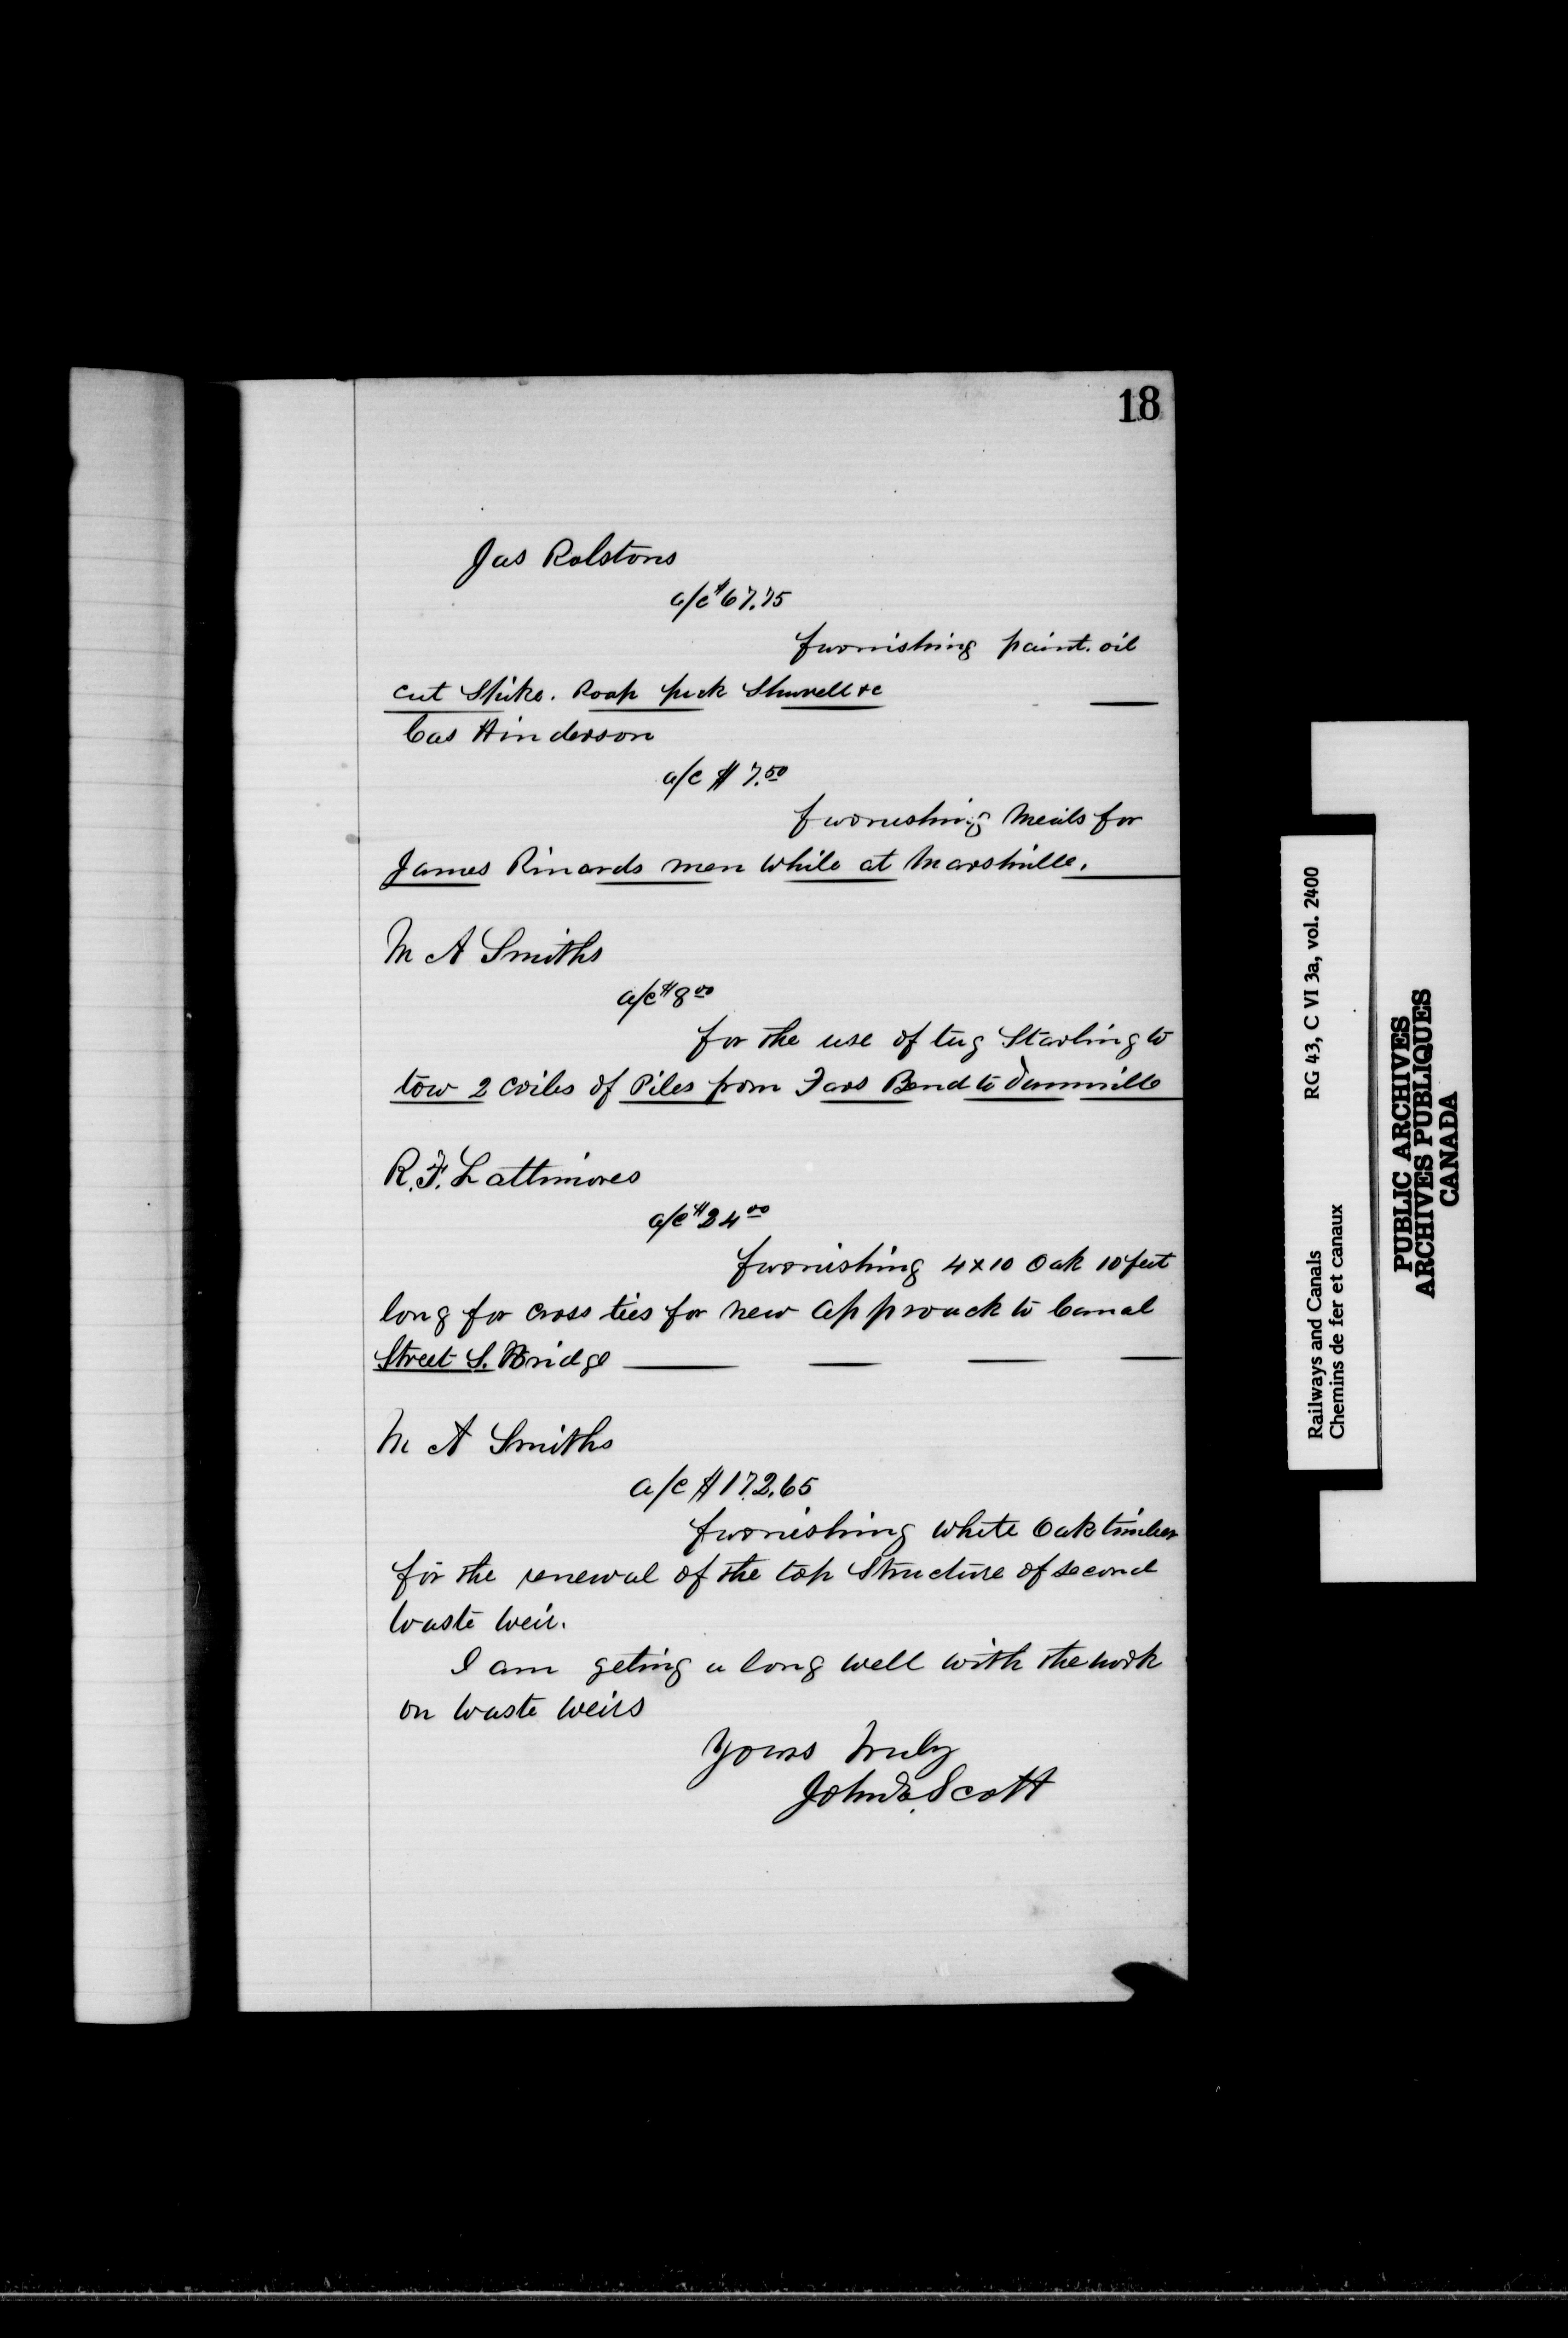 18
Jas Rolstons
a/c $67.75
furnishing paint. oil
cut Spike. Roap pick Shuvell &c
Cas Hinderson
a/c $7.50
furnishing Meals for
James Rinards men while at Marshville.
M A Smiths
a/c $8 00
for the use of tug Starling to
tow 2 Coiles of Piles from Bend to Dunnville
R. F. Lattimores
a/c $24 00
furnishing 4x10 Oak 10 feet
long for cross ties for new approack to Canal
Street S. Bridge
M A Smiths
a/c $172.65
furnishing white Oak timber
for the renewal of the top Structure of second
waste weir.
I am geting a long well with the work
on waste weirs
Yours Truly
John Scott
RG 43, C VI 3a, vol. 2400
Railways and Canals
Chemins de fer et canaux
PUBLIC ARCHIVES
ARCHIVES PUBLIQUES
CANADA